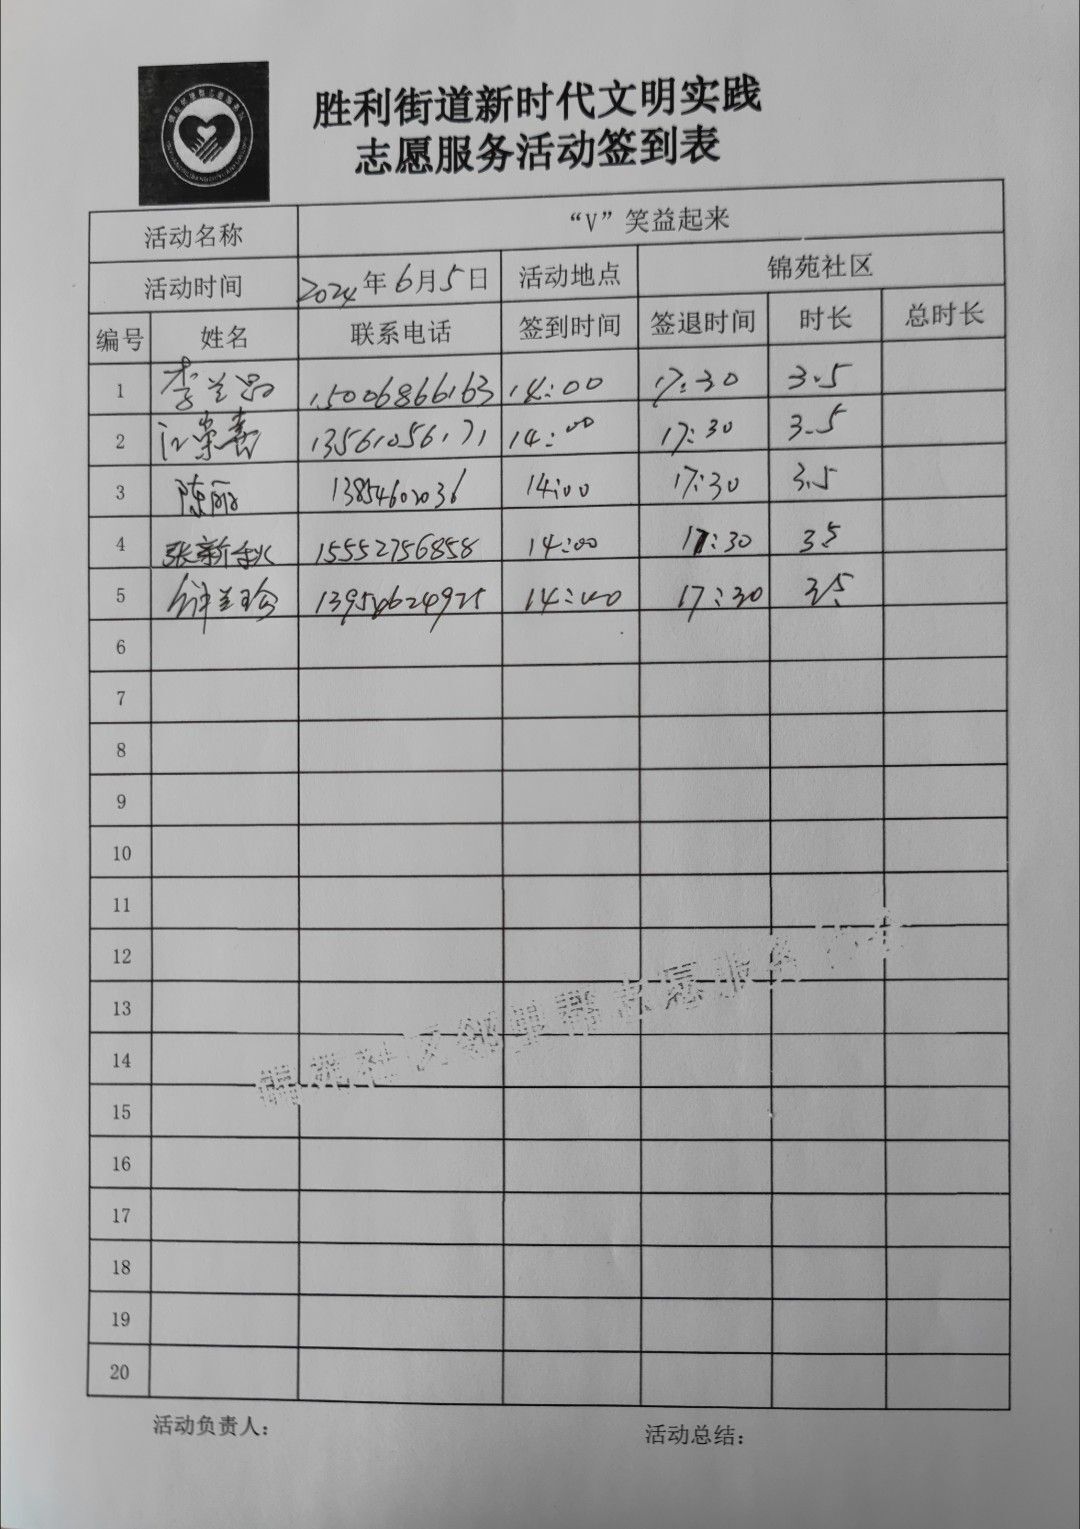 胜利街道新时代文明实践
志愿服务活动签到表
活动名称 “V”笑益起来
活动时间 2024年6月5日 活动地点 锦苑社区
编号 姓名 联系电话 签到时间 签退时间 时长 总时长
1 李兰 15006866163 14:00 17:30 3.5
2 江崇喜 13561056171 14:00 17:30 3.5
3 陈丽 13854602036 14:00 17:30 3.5
4 张新秋 15552756858 14:00 17:30 3.5
5 钟兰玲 13954624925 14:00 17:30 3.5
6
7
8
9
10
11
12
13
锦苑社区邻里帮志愿服务
14
15
16
17
18
19
20
活动负责人： 活动总结：